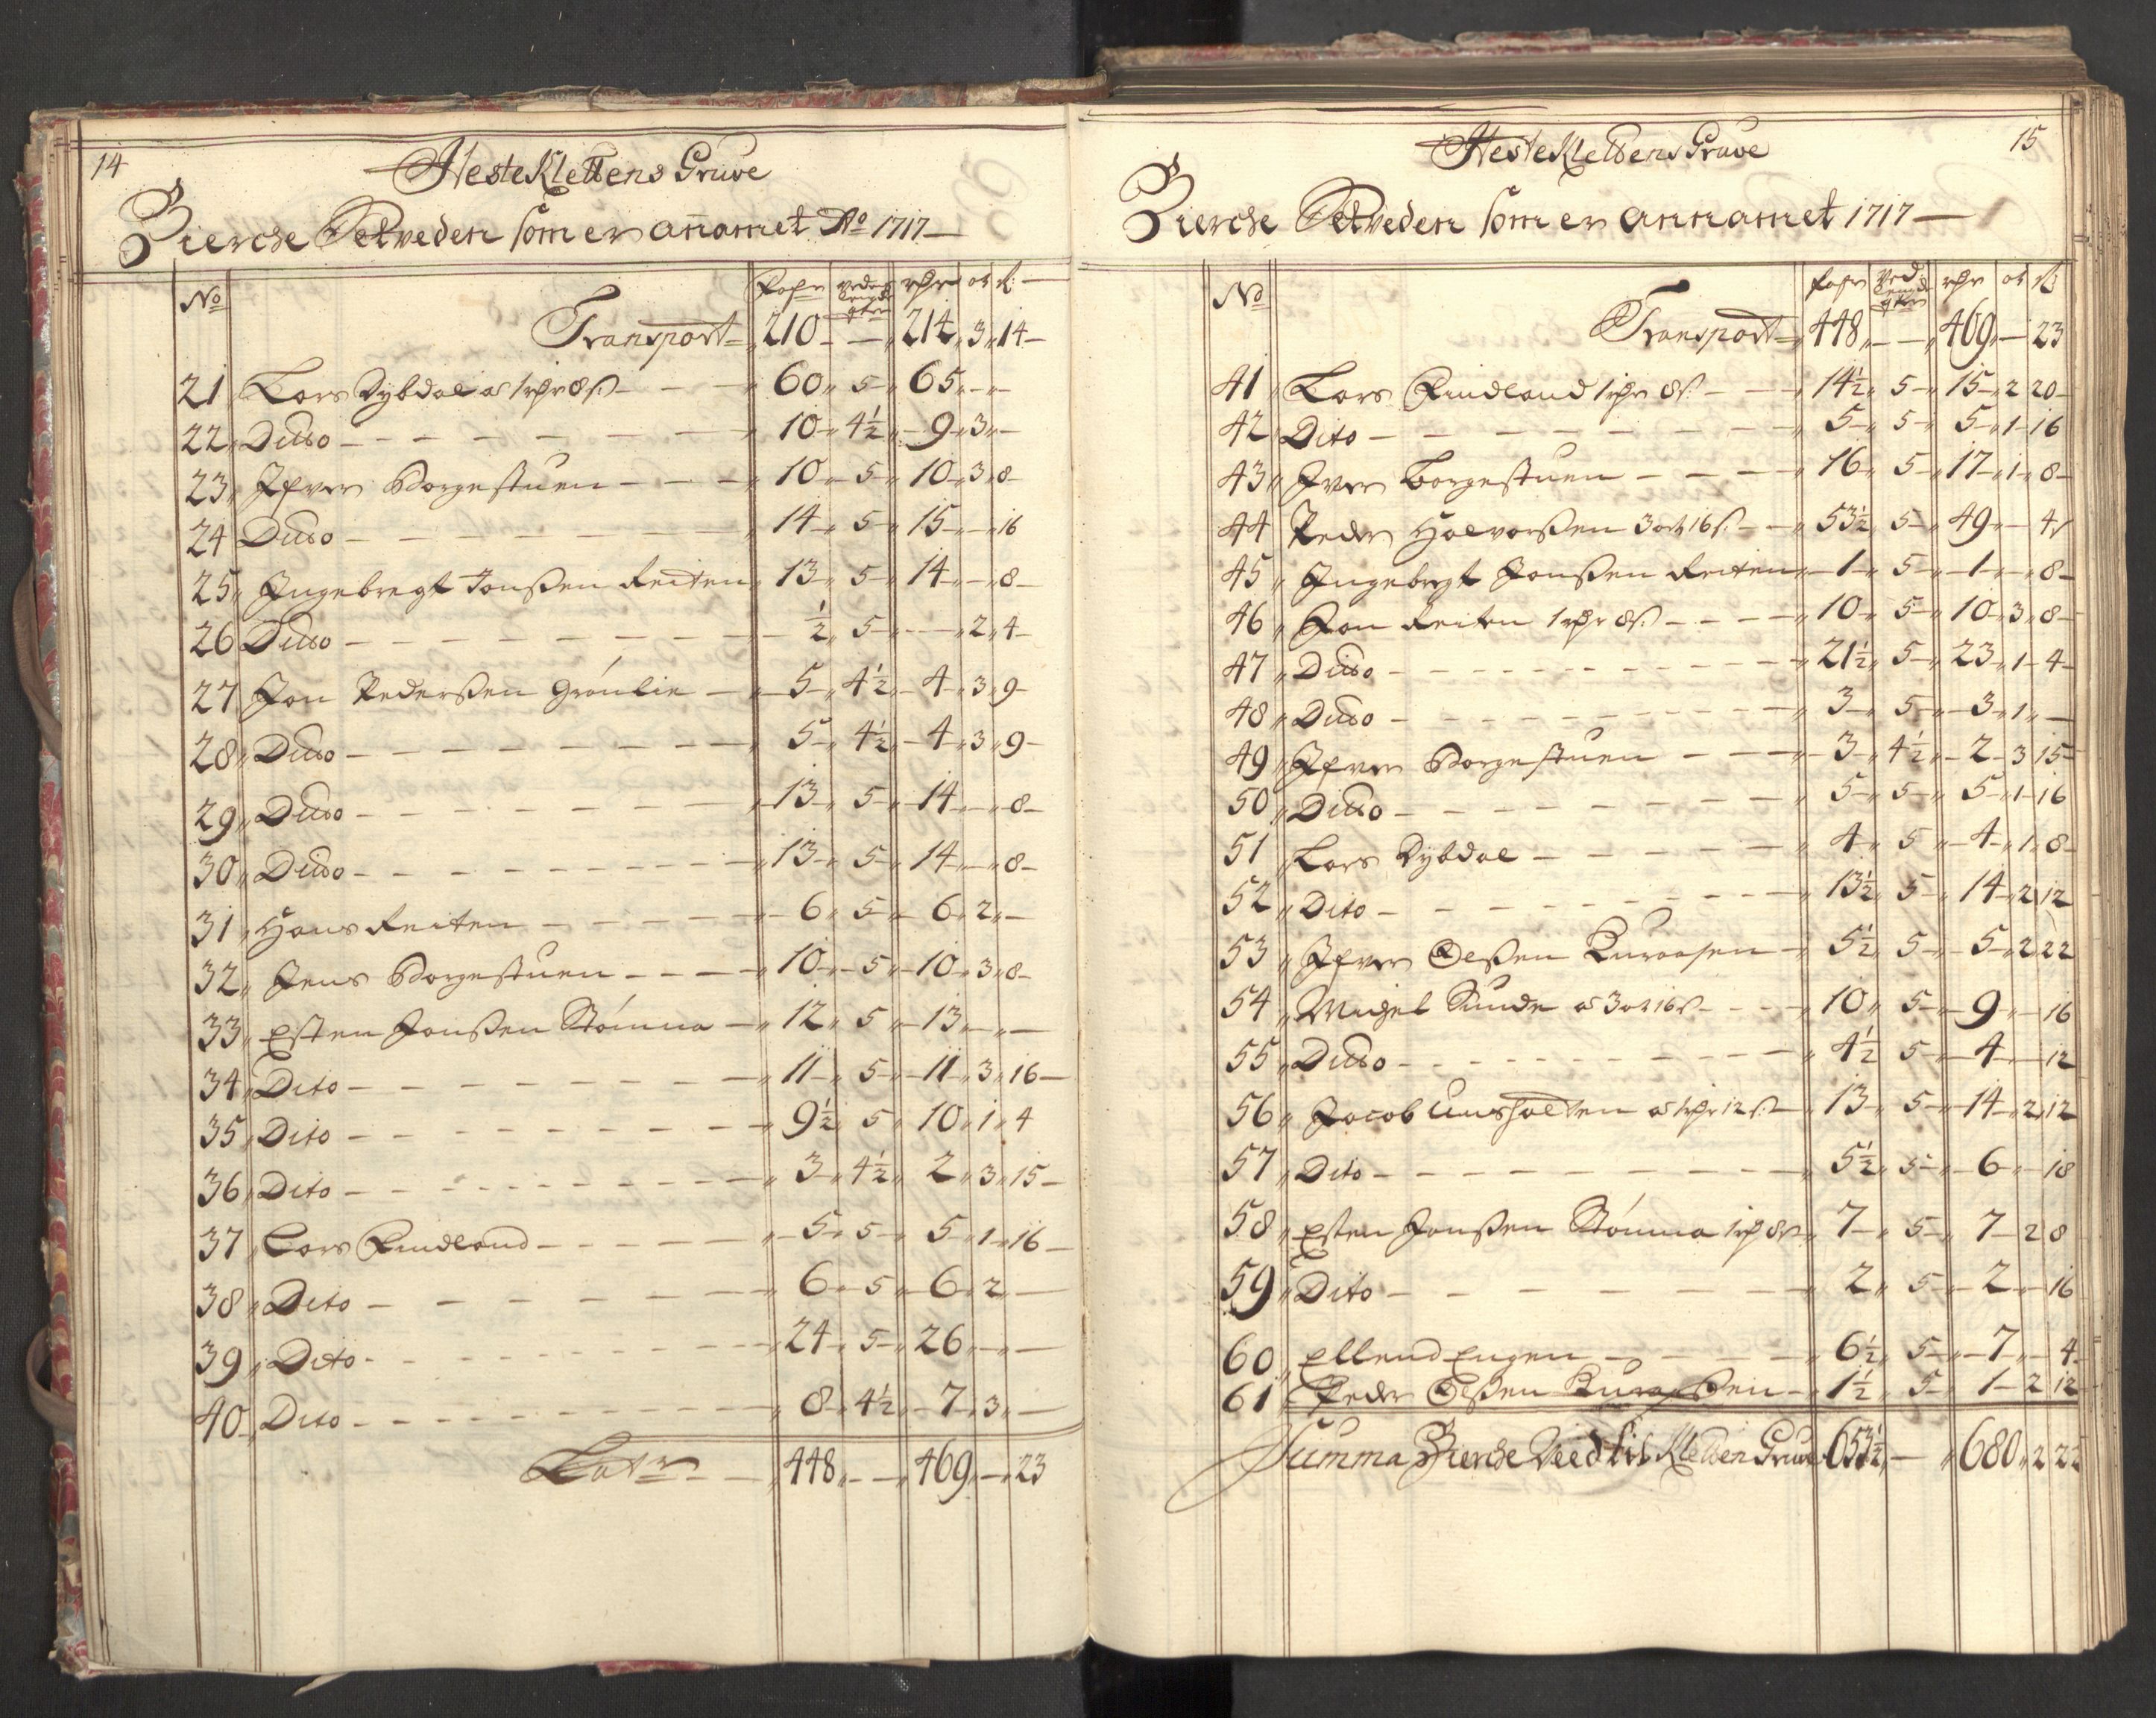 14
HesteKlettens Gruve
Bierche Setveden som er añamet Ao 1717
No
Transport 210 214 3 14
21 Lars Dybdal a 1 rdr 8 s 60 5 65
22 Ditto 10 4½ 9 3
23 Ifver Borgestuen 10 5 10 3 8
24 Ditto 14 5 15 16
25 Ingebregt Jonßen Reiten 13 5 14 8
26 Ditto ½ 5 2 4
27 Jon Pederßen Grönlie 5 4½ 4 3 9
28 Ditto 5 4½ 4 3 9
29 Ditto 13 5 14 8
30 Ditto 13 5 14 8
31 Hans Reiten 6 5 6 2
32 Jens Borgestuen 10 5 10 3 8
33 Esten Jonßen Stömna 12 5 13
34 Dito 11 5 11 3 16
35 Dito 9½ 5 10 1 4
36 Dito 3 4½ 2 3 15
37 Lars Rindland 5 5 5 1 16
38 Dito 6 5 6 2
39 Dito 24 5 26
40 Dito 8 4½ 7 3
Latr 448 469 23
15
HesteKlettens Gruve
Bierche Setveden som er annamet 1717
No
Transport 448 469 23
41 Lars Rindland 1 rdr 8 s 14½ 5 15 2 20
42 Dito 5 5 5 1 16
43 Iver Borgestuen 16 5 17 1 8
44 Peder Halvorßen 3 ort 16 s 53½ 5 49 4
45 Ingebregt Jonßen Reiten 1 5 1 8
46 Jon Reiten 1 rdr 8 s 10 5 10 3 8
47 Ditto 21½ 5 23 1 4
48 Ditto 3 5 3 1
49 Ifver Borgestuen 3 4½ 2 3 15
50 Ditto 5 5 5 1 16
51 Lars Dybdal 4 5 4 1 8
52 Dito 13½ 5 14 2 12
53 Ifver Olßen Kuraasen 5½ 5 5 2 22
54 Migel Sunde a 3 ort 16 s 10 5 9 16
55 Ditto 4½ 5 4 12
56 Jacob Aunsholten a 1 rdr 12 s 13 5 14 2 12
57 Dito 5½ 5 6 18
58 Esten Jonßen Stömna 1 rd 8 s 7 5 7 2 8
59 Dito 2 5 2 16
60 Ellend Engen 6½ 5 7 4
61 Peder Olßen 1½ 5 1 2 12
Summa Bierche Veed til Kletten Gruve 653½ 680 2 22